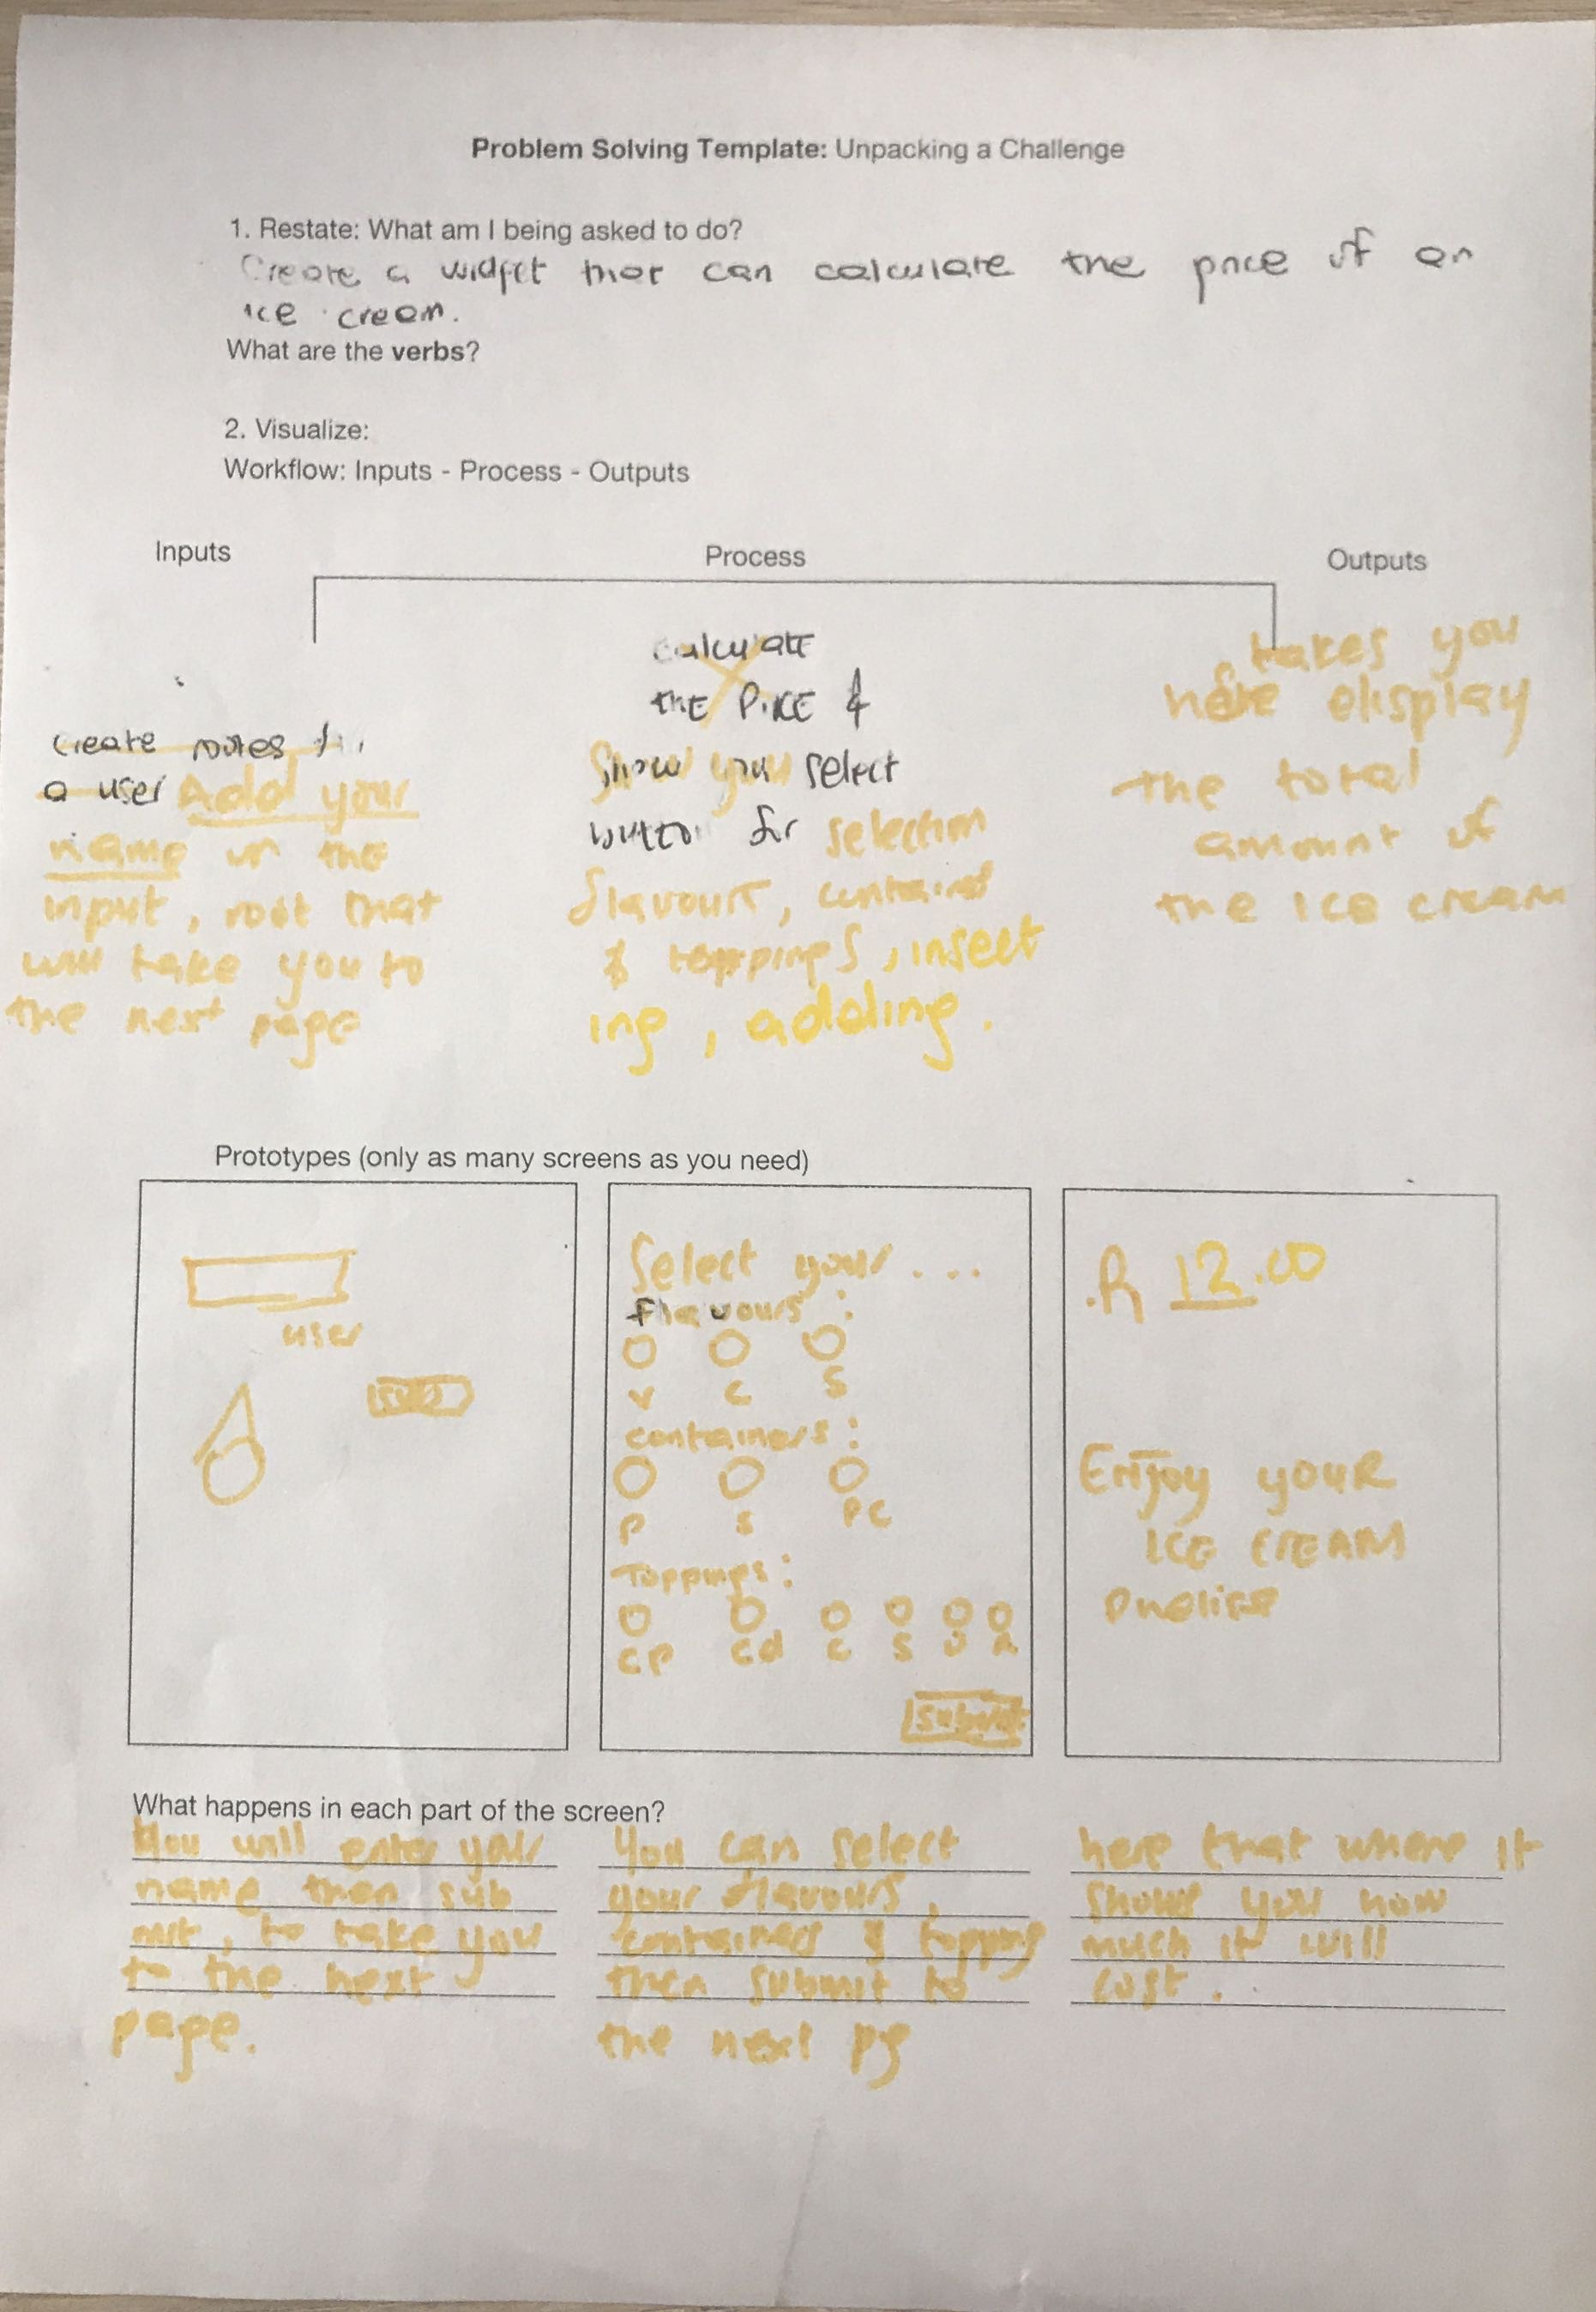 Problem Solving Template: Unpacking a Challenge
1. Restate: What am I being asked to do?
Create a widget that can calculate the price of an
ice cream.
What are the verbs?
2. Visualize:
Workflow: Inputs - Process - Outputs
Inputs
create routes for
a user Add your
name in the
input, root that
will take you to
the next page
Process
calculate
the PRICE &
Show you select
button for selection
flavours, containers
& toppings, insert
ing, adding.
Outputs
takes you
here display
the total
amount of
the ice cream
Prototypes (only as many screens as you need)
user
Select your ...
flavours :
V C S
containers :
P S PC
Toppings :
CP Cd C S
submit
R 12.00
Enjoy your
ICE CREAM
What happens in each part of the screen?
You will enter your
name then sub
mit, to take you
to the next
page.
You can select
your flavours,
containers & topping
then submit to
the next pg
here that where it
shows you how
much it will
cost.